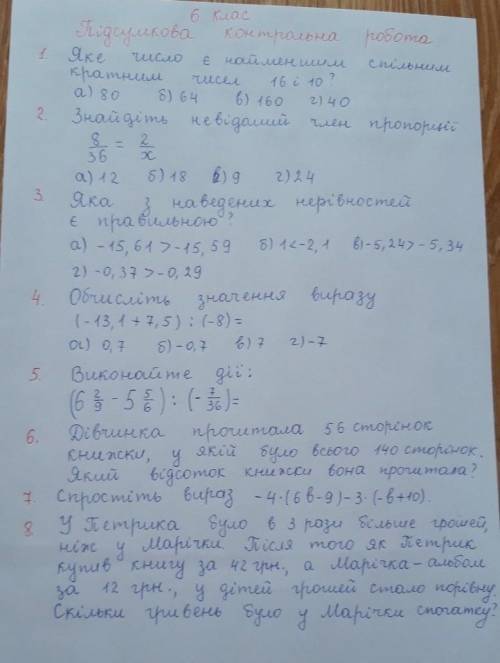 6 клас
Підсумкова контрольна робота
1. Яке число є найменшим спільним
кратним чисел 16 і 10?
а) 80 б) 64 в) 160 г) 40
2. Знайдіть невідомий член пропорції
8/36 = 2/x
а) 12 б) 18 в) 9 г) 24
3. Яка з наведених нерівностей
є правильною?
а) -15,61 > -15,59 б) 1 < -2,1 в) -5,24 > -5,34
г) -0,37 > -0,29
4. Обчисліть значення виразу
(-13,1 + 7,5) : (-8) =
а) 0,7 б) -0,7 в) 7 г) -7
5. Виконайте дії:
(6 2/9 - 5 5/6) : (- 7/36) =
6. Дівчинка прочитала 56 сторінок
книжки, у якій було всього 140 сторінок.
Який відсоток книжки вона прочитала?
7. Спростіть вираз -4·(6в-9)-3·(-в+10).
8 У Петрика було в 3 рази більше грошей,
ніж у Марічки. Після того як Петрик
купив книгу за 42 грн., а Марічка - альбом
за 12 грн., у дітей грошей стало порівну.
Скільки гривень було у Марічки спочатку?